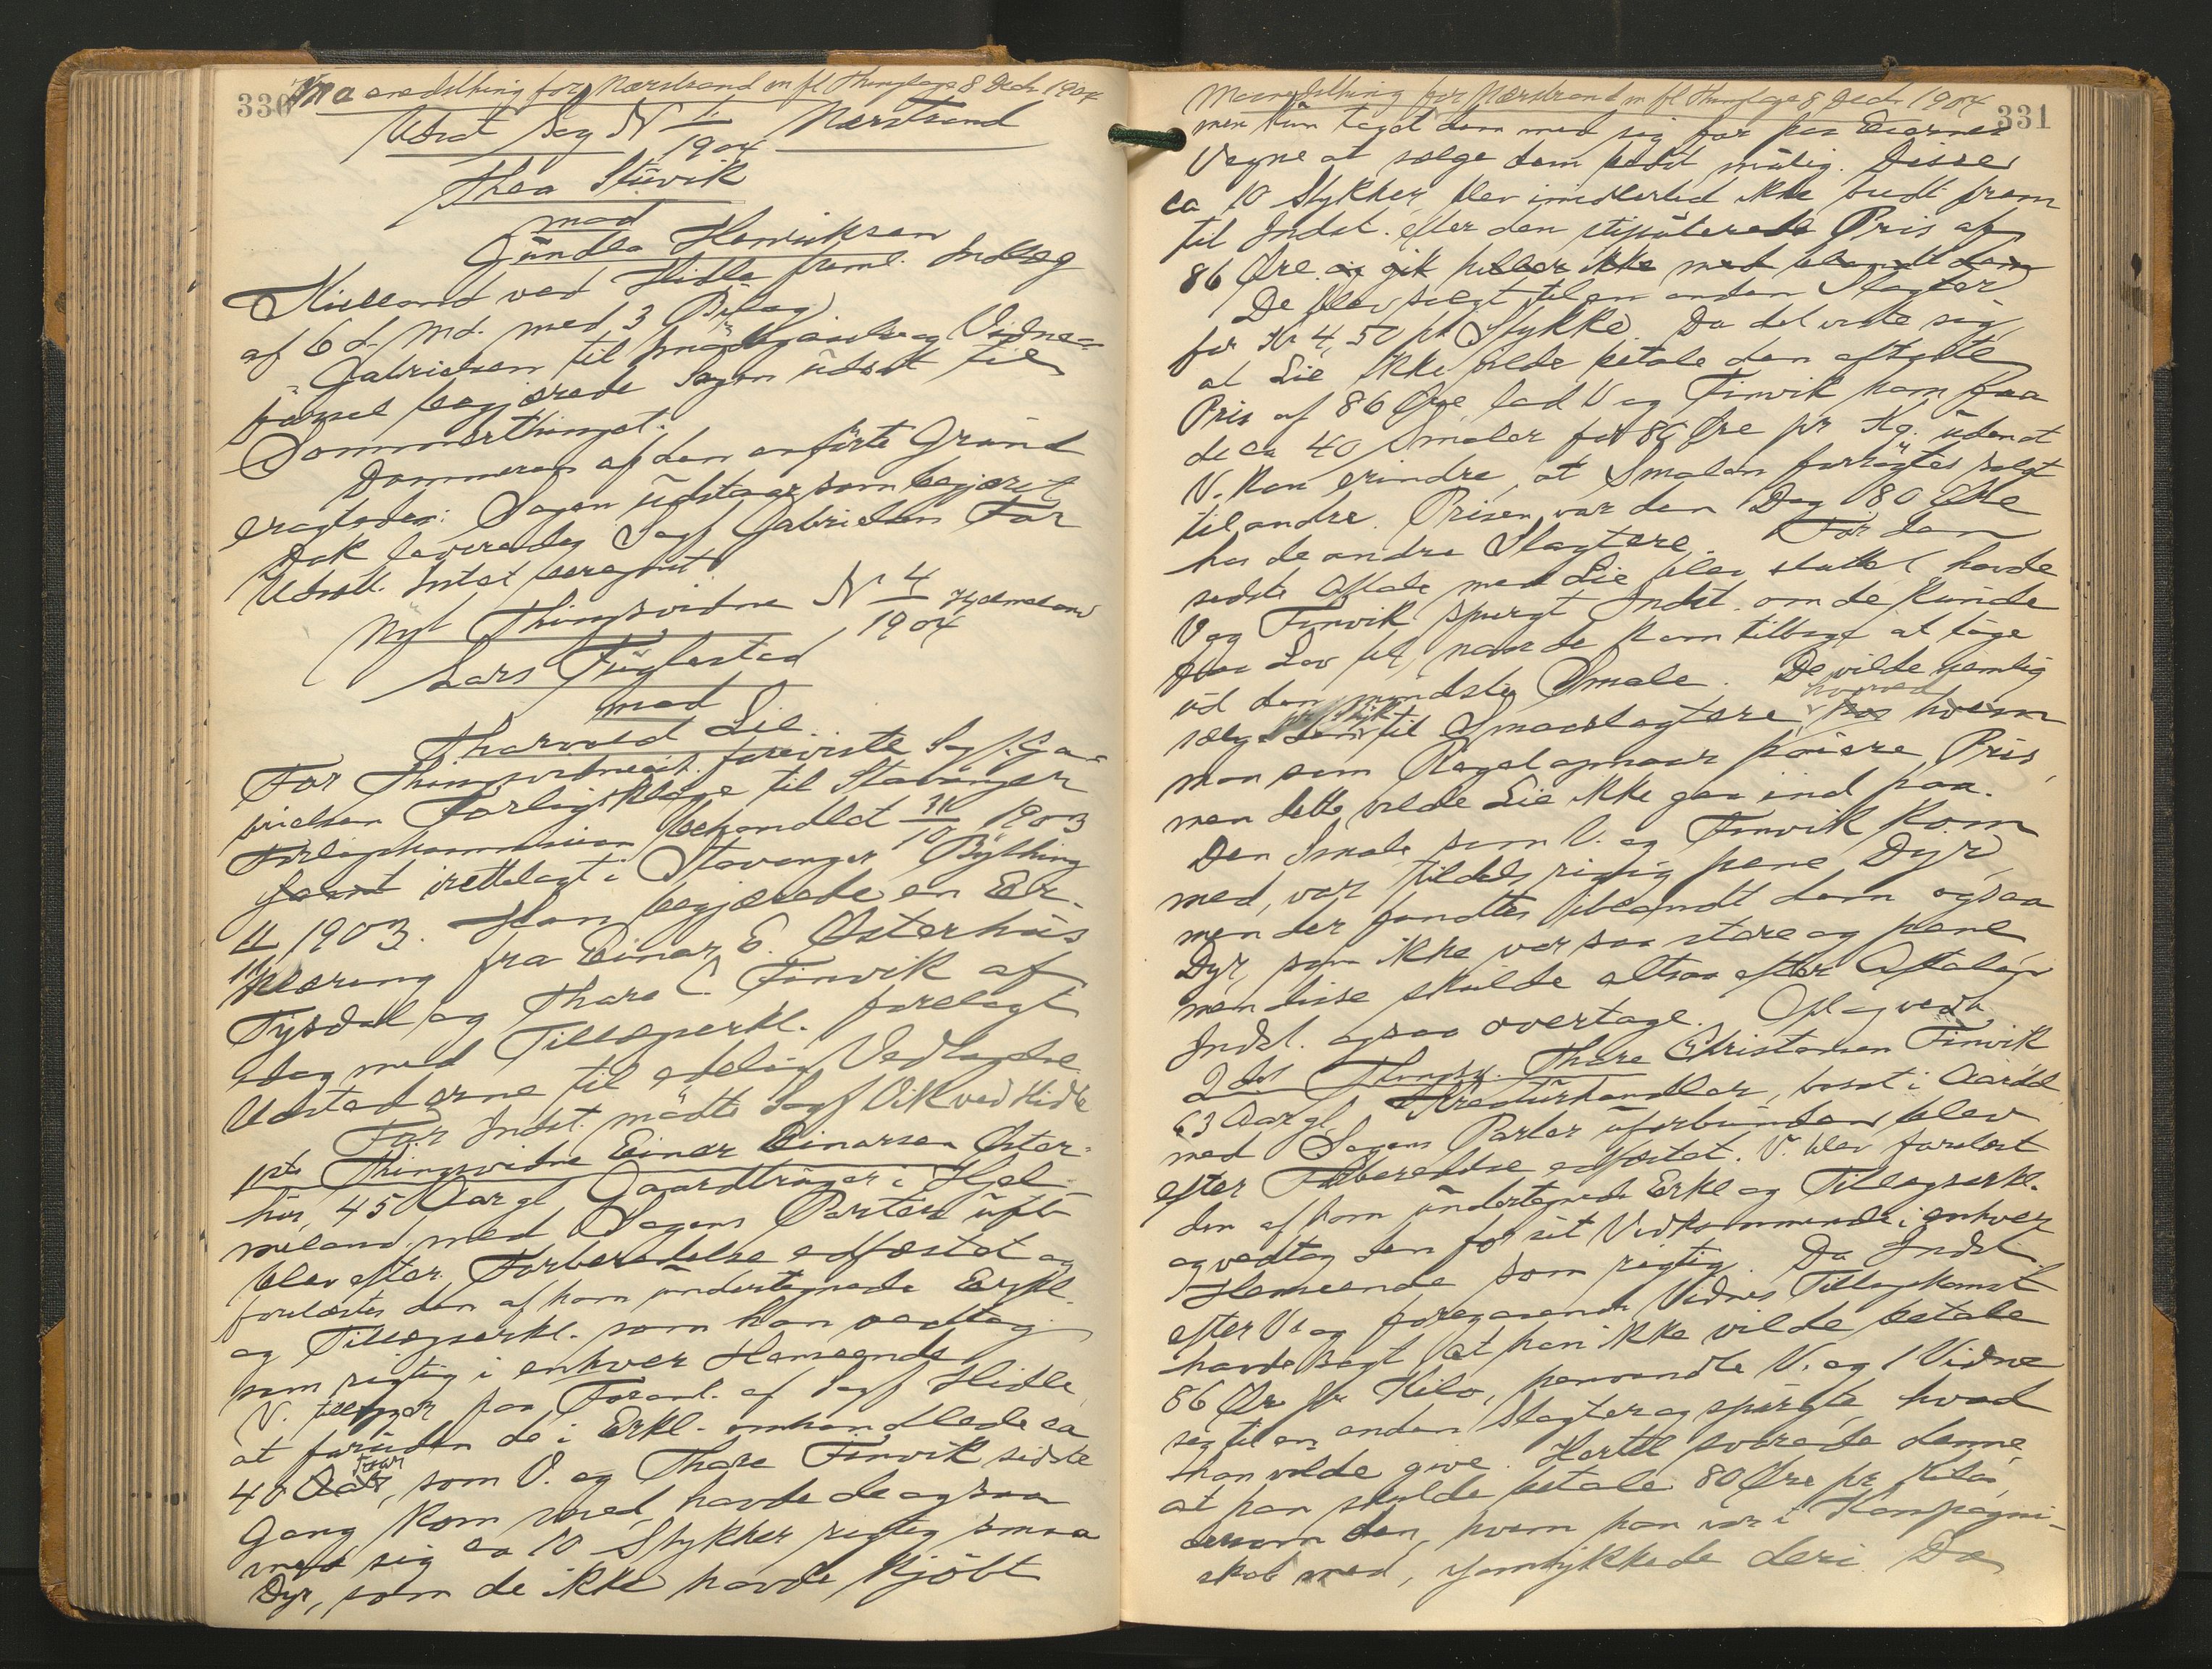 330 Maanedsthing for Nærstrand m fl Thinglage 8 Decb 1904
Udsat Sag N 1/1904 Nærstrand
Thea Stuvik
mod
Gundla Henriksen
Kielland ved Hidle freml. Indlæg
af 6 d. Md. med 3 Bilag
Gabrielsen til Imødegaaelse og Vidne=
førsel begjærede Sagen udsat til
Sommerthinget.
Dommeren af den anførte Grund
eragtede: Sagen udstaar som begjæret
Dok leveredes Sagf Gabrielsen For
Udsætt. Intet beregnet
Nyt Thingsvidne N 4/1904 Hjelmeland
Lars Fuglestad
mod
Tharvald Lie
For Thingsvidneudst. foreviste Sagf. Ga=
brielsen Forligsklage til Stavanger
Forligskommission behandlet 31/10 1903
samt irettelagt i Stavanger Bything
11/11 1903. Han begjærede en Er-
klæring fra Einar E. Østerhus
Tysdal og Thore C. Finvik af
idag med Tillægserkl. forelagt
Udstederne til edelig Vedtagelse
For Indst. mødte Sagf Vik ved Hidle
1ste Thingsvidne Einar Einarsen Øster=
hus, 45 Aar gl Gaardbruger i Hjel-
meland, med Sagens Parter ufb
blev efter Forberedelse edfæstet og
forelæstes den af ham undertegnede Erkl.
og Tillægserkl. som han vedtog
som rigtig i enhver Henseende
V. tillægger paa Foranl. af Sagf Hidle
at foruden de i Erkl. omhandlede ca
40 Faar, som V. og Thore Finvik sidste
Gang kom med, havde de ogsaa
med sig ca 10 Stykker rigtig smaa
Dyr, som de ikke havde kjøbt
Maanedsthing for Nærstrand m fl Thinglage 8 Decb 1904 331
men kun taget dem med sig for paa Eiernes
Vegne at sælge dem bedst mulig. Disse
ca 10 Stykker blev imidlertid ikke budt frem
til Indst. efter den stipulerede Pris af
86 Øre og gik heller ikke med blandt dem
De blev solgt til en anden Slagter
for Kr 4,50 pr Stykke. Da det viste sig
at Lie ikke vilde betale den aftalte
Pris af 86 Øre lod V og Finvik ham faa
de ca 40 Smaler for 86 Øre pr Kg. uden at
V. kan erindre, at Smalen forsøgtes solgt
til andre. Prisen var den Dag 80 Øre
hos de andre Slagtere. Før den
sidste Aftale med Lie blev sluttet havde
V og Finvik spurgt Indst. om de kunde
faa Lov til, naar de kom tilbage at tage
ud den mindste Smale. De vilde nemlig
sælge dem pr Styk til Smaaslagtere, hvorved
man som Regel opnaar høiere Pris,
men dette vilde Lie ikke gaa ind paa.
Den Smale som V. og Finvik kom
med, var tildels rigtig pene Dyr,
men der fandtes iblandt dem ogsaa
Dyr, som ikke var saa store og pene
men disse skulde altsaa efter Aftalen
Indst. ogsaa overtage. Opl og vedt.
2det Thingsv. Thore Christensen Finvik
63 Aar gl, Kreaturhandler, bosat i Aardal
med Sagens Parter uforbunden blev
efter Forberedelse edfæstet. V. blev forelæst
den af ham undertegnede Erkl og Tillægserkl.
og vedtog den for sit Vedkommende i enhver
Henseende som rigtig. Da Indst.
efter Vs og foregaaende Vidnes Tilbagekomst
havde sagt, at han ikke vilde betale
86 Øre pr Kilo, henvendte V. og 1 Vidne
sig til en anden Slagter og spurgte, hvad
han vilde give. Hertil svarede denne,
at han skulde betale 80 Øre pr Kilo,
dersom den, hvem han var i Kompagni-
skab med, samtykkede deri. Da